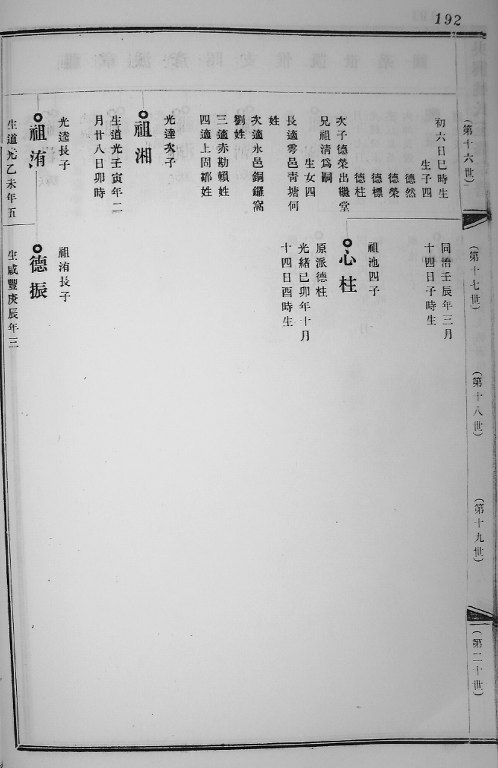 192
(第十六世)
初六日巳時生
生子四
德然
德榮
德標
德柱
次子德榮出繼堂
兄祖清為嗣
生女四
長適雩邑青塘何
姓
次適永邑銅鑼窩
劉姓
三適赤勘賴姓
四適上固鄒姓
光達次子
祖湘
生道光壬寅年二
月廿八日卯時
光達長子
祖洧
生道光乙未年五
(第十七世)
同治壬辰年三月
十四日子時生
祖池四子
心柱
原派德柱
光緒己卯年十月
十四日酉時生
祖洧長子
德振
生咸豐庚辰年三
(第十八世)
(第十九世)
(第二十世)